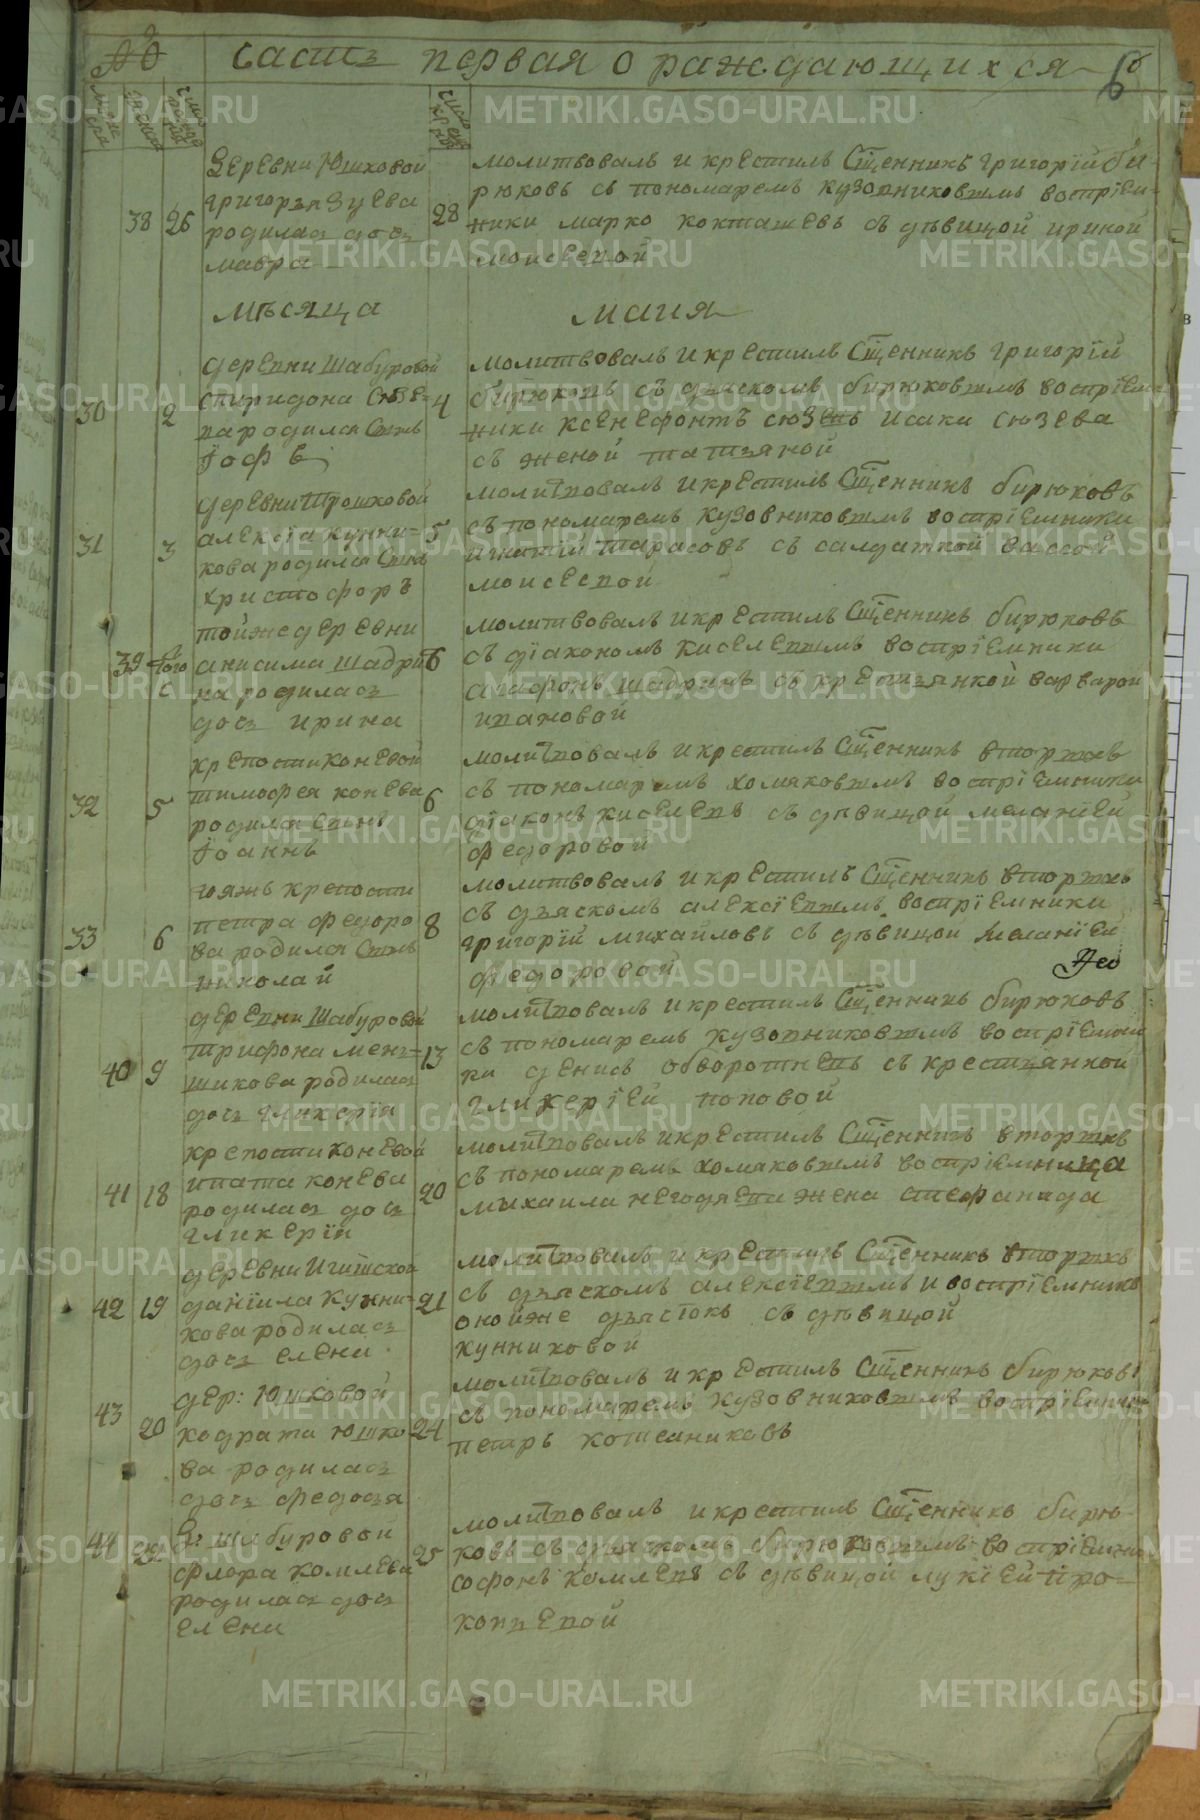 часть первая о раждающихся
деревни Юшковой
григорья Зуева
родилась дочь
мавра
38 26 28
молитвовалъ и крестилъ Сщ҃енникъ григорїй би-
рюковъ съ пономаремъ кузовниковымъ воспрїем-
ники марко кокташевъ съ дѣвицой ириной
моисеевой
мѣсяца маия
30 2 4
деревни Шабуровой
спиридона Сюзе-
ва родился Сынъ
Їосфъ
молитвовалъ и крестилъ Сщ҃енникъ григорїй
бирюковъ съ дьяскомъ бирюковымъ воспрїем
ники ксенефонтъ сюзевъ исаки сюзева
съ женой татьяной
31 3 5
деревни Трошковой
алексїа кунни-
кова родился Сынъ
христофоръ
молитвовалъ и крестилъ Сщ҃енникъ бирюковъ
съ пономаремъ кузовниковымъ воспрїемники
игнатїй тарасовъ съ салдаткой вассой
моисеевой
39 того 6
тойже деревни
анисима шадри
на родилась
дочь ирина
молитвовалъ и крестилъ Сщ҃енникъ бирюковъ
съ дїакономъ киселевымъ воспрїемники
агафонъ шадринъ съ крестьянкой варварой
ивановой
32 5 6
крепости коневой
тимофея конева
родился Сынъ
Їоаннъ
молитвовалъ и крестилъ Сщ҃енникъ вторыхъ
съ пономаремъ хомяковымъ воспрїемники
дїаконъ киселевъ съ дѣвицой меланїей
федоровой
33 6 8
тояжъ крепости
петра федоро
ва родился Сынъ
николай
молитвовалъ и крестилъ Сщ҃енникъ вторыхъ
съ дьяскомъ алексїевымъ воспрїемники
григорїй михайловъ съ дѣвицой меланїей
федоровой
40 9 13
деревни Шабуровой
трифона менг-
шикова родилась
дочь гликерїи
молитвовалъ и крестилъ Сщ҃енникъ бирюковъ
съ пономаремъ кузовниковымъ воспрїемни
ки денисъ обворотневъ съ крестьянкой
гликерїей поповой
41 18 20
крепости коневой
ипата конева
родилась дочь
гликерїи
молитвовалъ и крестилъ Сщ҃енникъ вторыхъ
съ пономаремъ хомяковымъ воспрїемница
михаила негодяева жена стефанида
42 19 21
деревни Игишской
данїила кунни-
кова родилась
дочь елена
молитвовалъ и крестилъ Сщ҃енникъ вторыхъ
съ дьяскомъ алексїевымъ и воспрїемникъ
онойже дьястокъ съ дѣвицой
кунниковой
43 20 24
дер: Юшковой
кодрата юшко
ва родилась
дочь федосья
молитвовалъ и крестилъ Сщ҃енникъ бирюковъ
съ пономаремъ кузовниковымъ воспрїемни-
петръ котисаниковъ
44 25
д: шабуровой
флора комлева
родилась дочь
елена
молитвовалъ и крестилъ Сщ҃енникъ бирю-
ковъ съ дьяскомъ бирюковымъ воспрїемни
софонъ комлевъ съ дѣвицой лукїей про-
копьевой
METRIKI.GASO-URAL.RU